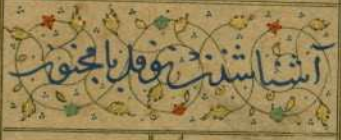 آشنا شدن نوفل با مجنون